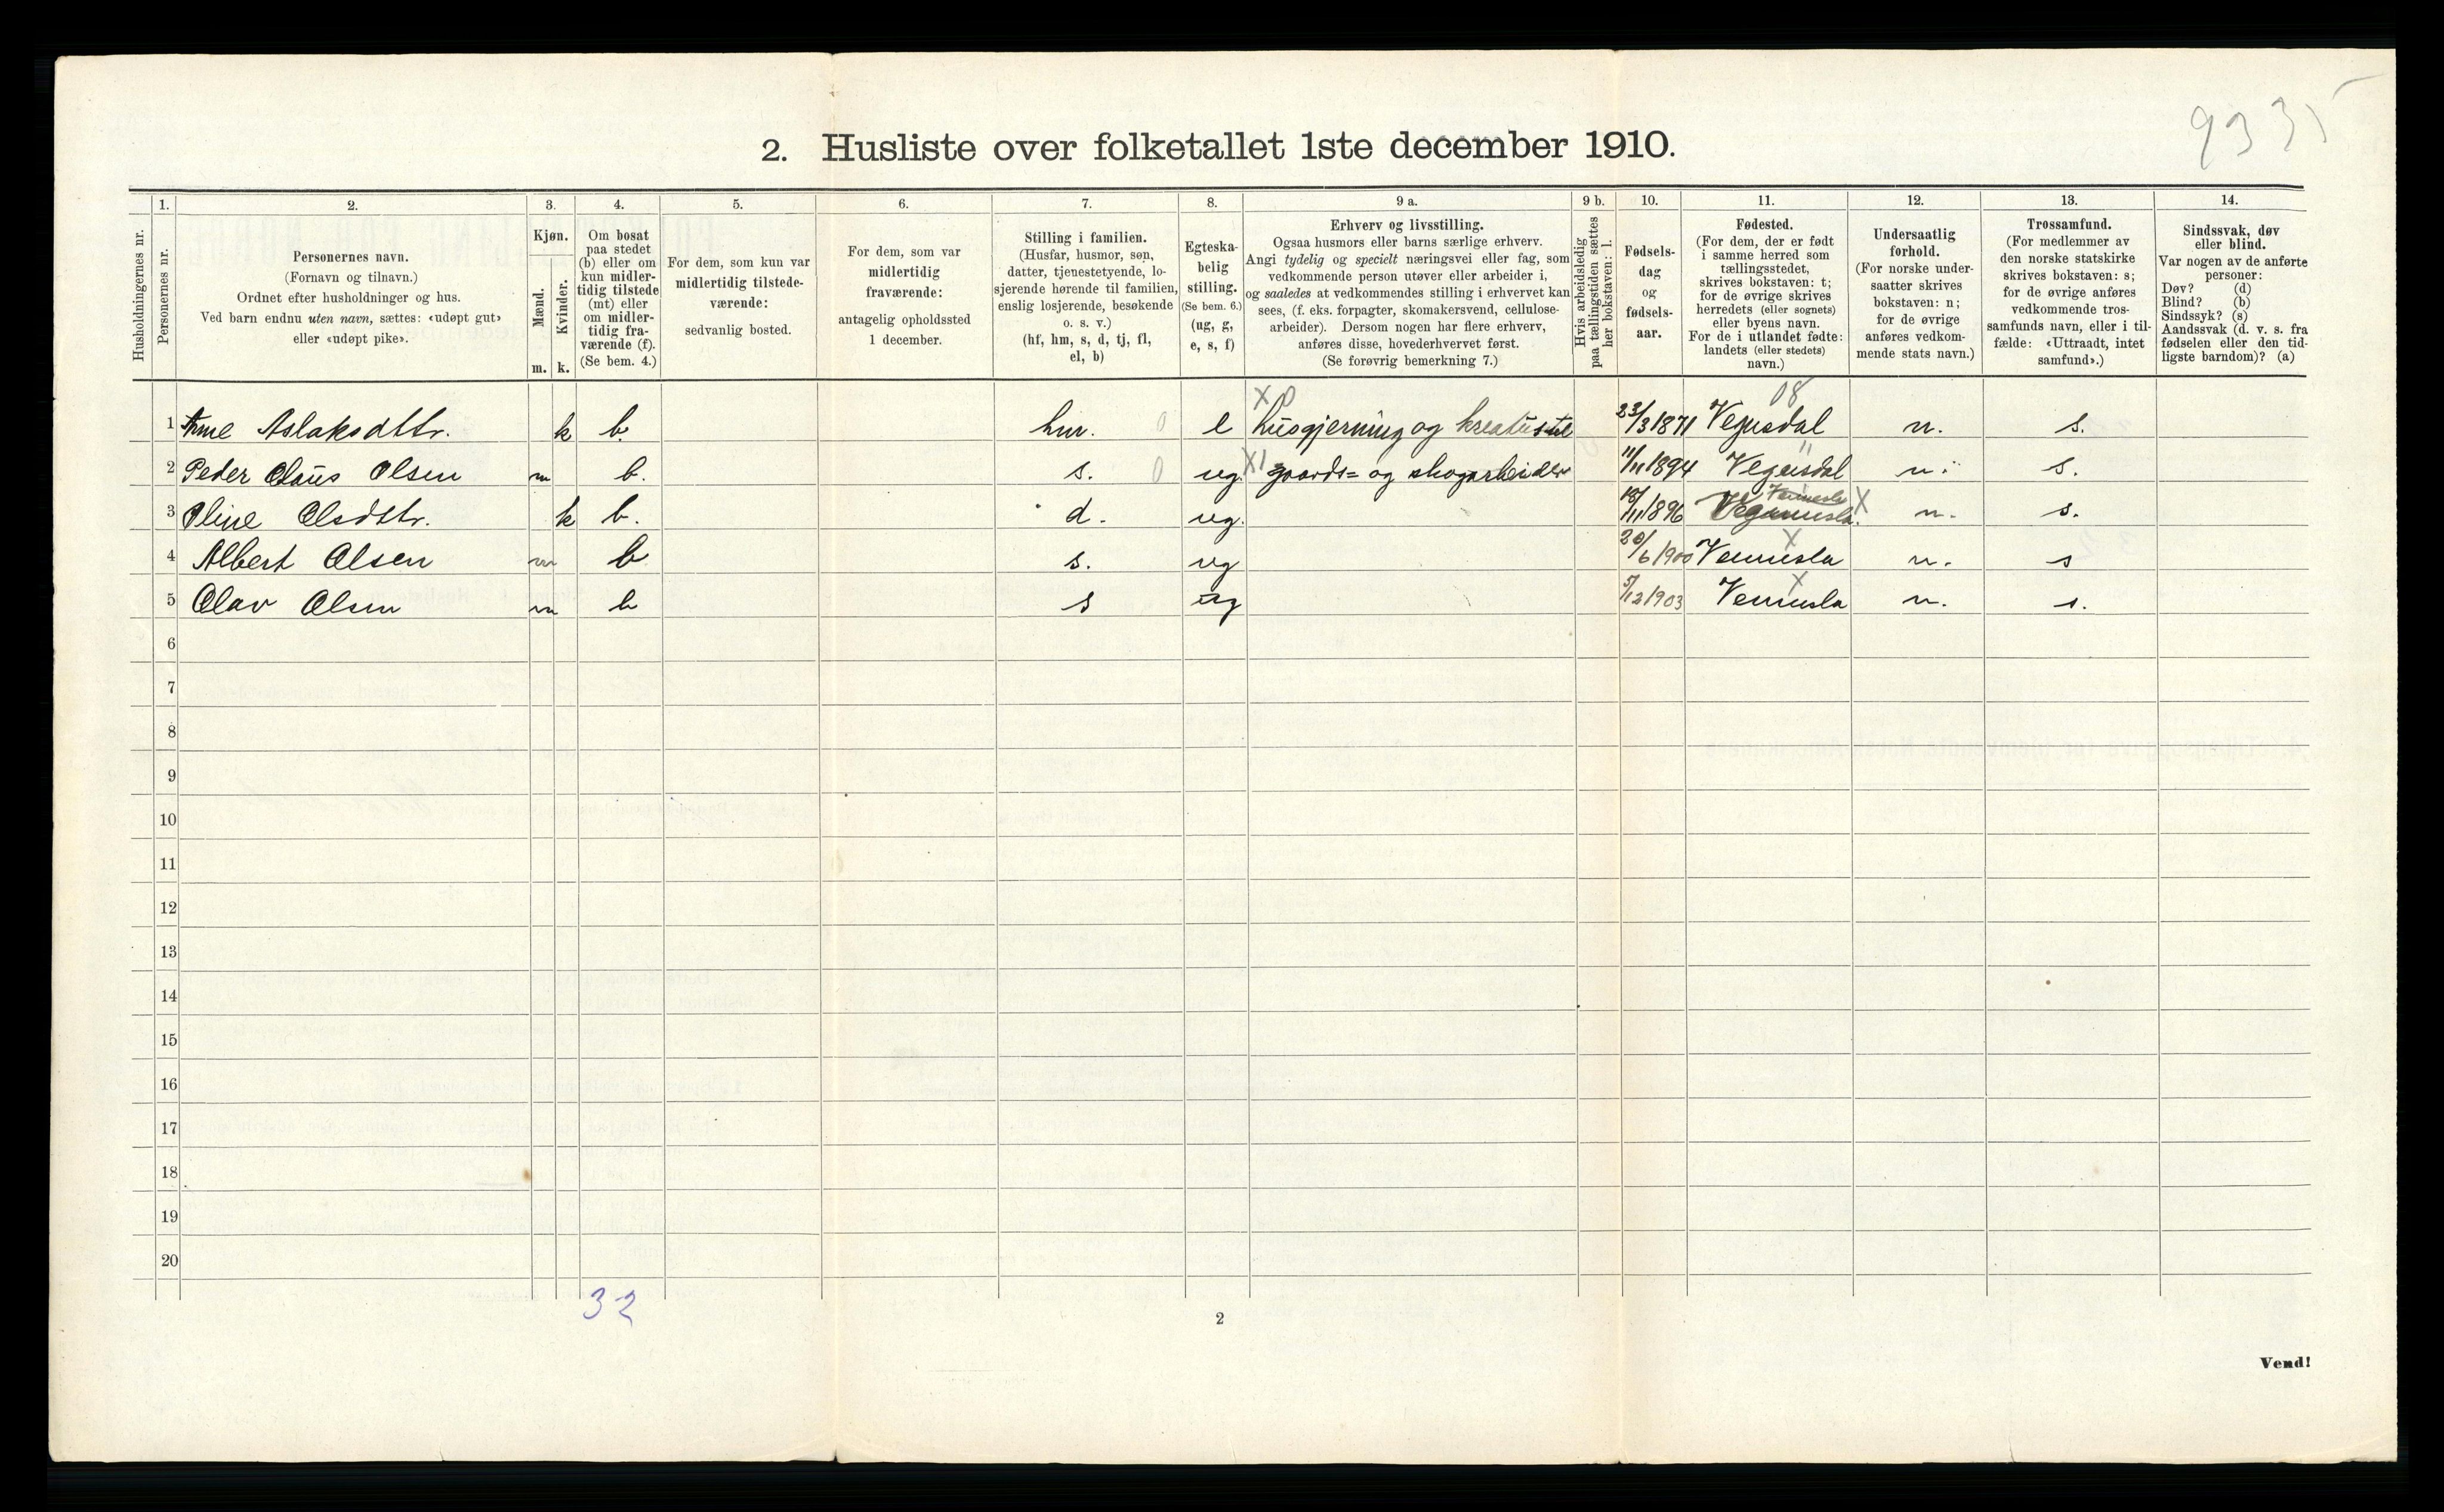 9335
2. Husliste over folketallet 1ste december 1910.
Husholdningernes nr.
1.
Personernes nr.
2.
Personernes navn.
(Fornavn og tilnavn.)
Ordnet efter husholdninger og hus.
Ved barn endnu uten navn, sættes: «udøpt gut»
eller «udøpt pike».
3.
Kjøn.
Mænd.
Kvinder.
m. k.
4.
Om bosat
paa stedet
(b) eller om
kun midler-
tidig tilstede
(mt) eller
om midler-
tidig fra-
værende (f).
(Se bem. 4.)
5.
For dem, som kun var
midlertidig tilstede-
værende:
sedvanlig bosted.
6.
For dem, som var
midlertidig
fraværende:
antagelig opholdssted
1 december.
7.
Stilling i familien.
(Husfar, husmor, søn,
datter, tjenestetyende, lo-
sjerende hørende til familien,
enslig losjerende, besøkende
o. s. v.)
(hf, hm, s, d, tj, fl,
el, b)
8.
Egteska-
belig
stilling.
(Se bem. 6.)
(ug, g,
e, s, f)
9 a.
Erhverv og livsstilling.
Ogsaa husmors eller barns særlige erhverv.
Angi tydelig og specielt næringsvei eller fag, som
vedkommende person utøver eller arbeider i,
og saaledes at vedkommendes stilling i erhvervet kan
sees, (f. eks. forpagter, skomakersvend, cellulose-
arbeider). Dersom nogen har flere erhverv,
anføres disse, hovederhvervet først.
(Se forøvrig bemerkning 7.)
9 b.
Hvis arbeidsledig
paa tællingstiden sættes
her bokstaven: l.
10.
Fødsels-
dag
og
fødsels-
aar.
11.
Fødested.
(For dem, der er født
i samme herred som
tællingsstedet,
skrives bokstaven: t;
for de øvrige skrives
herredets (eller sognets)
eller byens navn.
For de i utlandet fødte:
landets (eller stedets)
navn.)
12.
Undersaatlig
forhold.
(For norske under-
saatter skrives
bokstaven: n;
for de øvrige
anføres vedkom-
mende stats navn.)
13.
Trossamfund.
(For medlemmer av
den norske statskirke
skrives bokstaven: s;
for de øvrige anføres
vedkommende tros-
samfunds navn, eller i til-
fælde: «Uttraadt, intet
samfund».)
14.
Sindssvak, døv
eller blind.
Var nogen av de anførte
personer:
Døv? (d)
Blind? (b)
Sindssyk? (s)
Aandssvak (d. v. s. fra
fødselen eller den tid-
ligste barndom)? (a)
X0 08
1 Ane Aslaksdttr. k b. hm. 0 e husgjerning og kreaturstel 23/3 1871 Vegusdal n. s.
2 Peder Claus Olsen m b. s. 0 ug. X1 gaards= og skogarbeider 11/11 1894 Vegusdal " n. s.
3 Oline Olsdttr. k b. d. ug. /11 1896 Vennesla X n. s.
4 Albert Olsen m b s. ug 20/6 1900 Vennesla X n. s
5 Olav Olsen m b s ug 5/12 1903 Vennesla X n. s.
6
7
8
9
10
11
12
13
14
15
16
17
18
19
20
32
2
Vend!